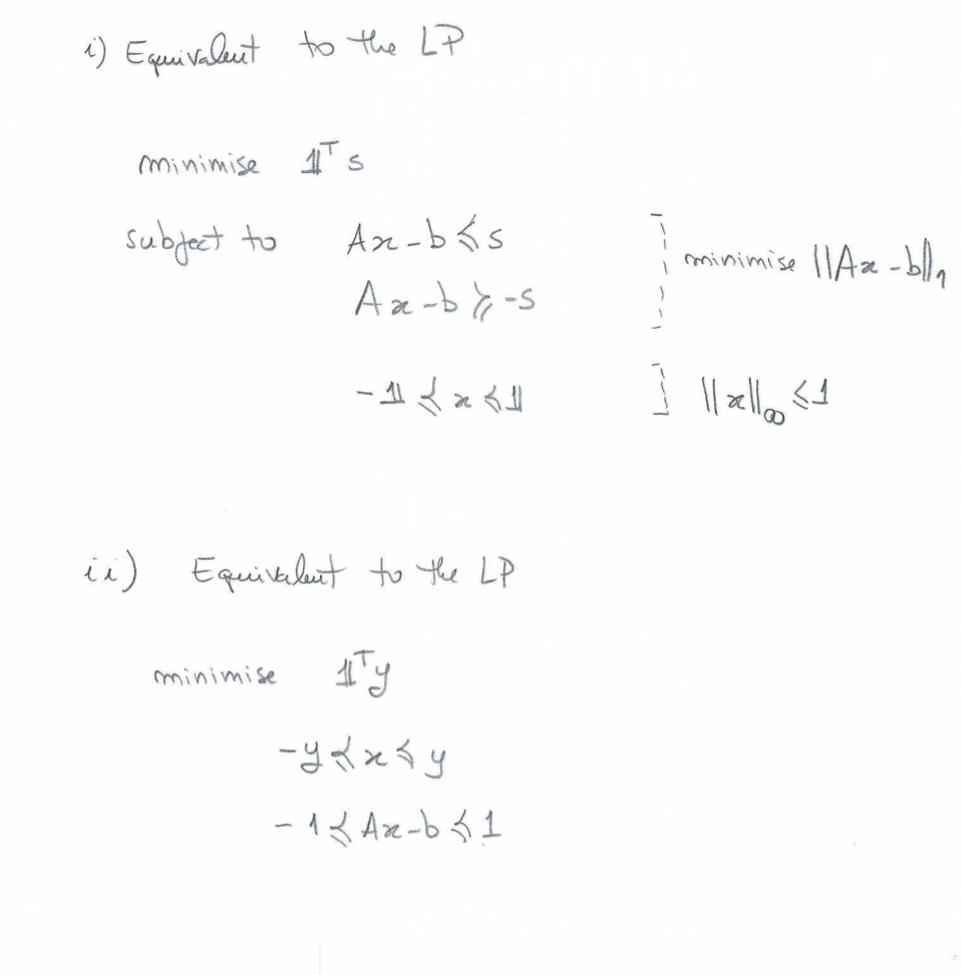 i) Equivalent to the LP
minimise 𝟙ᵀ s
subject to Ax - b ≼ s
Ax - b ≽ -s
minimise ||Ax - b||₁
-𝟙 ≼ x ≼ 𝟙 ||x||∞ ≤ 1
ii) Equivalent to the LP
minimise 𝟙ᵀy
-y ≼ x ≼ y
-1 ≼ Ax - b ≼ 1